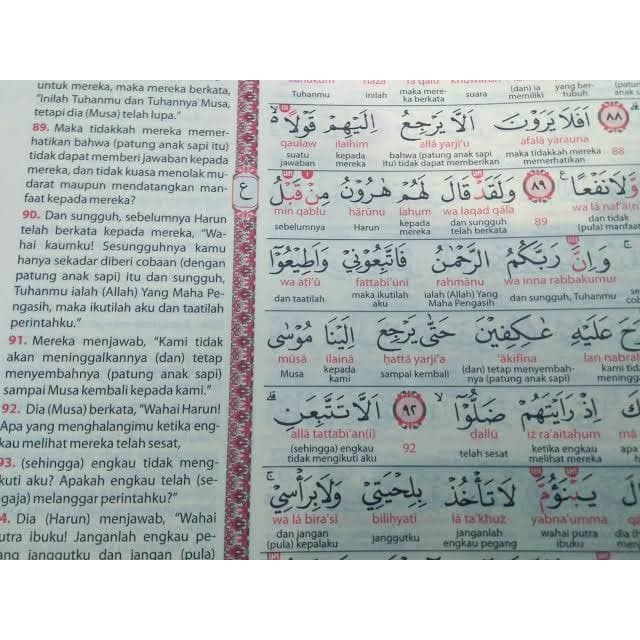 untuk mereka, maka mereka berkata,
"Inilah Tuhanmu dan Tuhannya Musa,
tetapi dia (Musa) telah lupa."
89. Maka tidakkah mereka memer-
hatikan bahwa (patung anak sapi itu)
tidak dapat memberi jawaban kepada
mereka, dan tidak kuasa menolak mu-
darat maupun mendatangkan man-
faat kepada mereka?
90. Dan sungguh, sebelumnya Harun
telah berkata kepada mereka, "Wa-
hai kaumku! Sesungguhnya kamu
hanya sekadar diberi cobaan (dengan
patung anak sapi) itu dan sungguh,
Tuhanmu ialah (Allah) Yang Maha Pe-
ngasih, maka ikutilah aku dan taatilah
perintahku."
91. Mereka menjawab, "Kami tidak
akan meninggalkannya (dan) tetap
menyembahnya (patung anak sapi)
sampai Musa kembali kepada kami."
92. Dia (Musa) berkata, "Wahai Harun!
Apa yang menghalangimu ketika eng-
kau melihat mereka telah sesat,
93. (sehingga) engkau tidak meng-
kuti aku? Apakah engkau telah (se-
gaja) melanggar perintahku?"
4. Dia (Harun) menjawab, "Wahai
utra ibuku! Janganlah engkau pe-
ang janggutku dan jangan (pula)
ع
Tuhanmu inilah maka mere- suara (dan) ia yang ber-
ka berkata memiliki tubuh
٨٨ اَفَلَا يَرَوْنَ اَلَّا يَرْجِعُ اِلَيْهِمْ قَوْلًا ەۙ
qaulaw ilaihim allā yarji'u afalā yarauna 88
suatu kepada bahwa (patung anak sapi maka tidakkah mereka
jawaban mereka itu) tidak dapat memberikan memperhatikan
وَّلَا نَفْعًا ࣖ ٨٩ وَلَقَدْ قَالَ لَهُمْ هٰرُوْنُ مِنْ قَبْلُ
min qablu hārūnu lahum wa laqad qāla 89 wa lā naf'ān
sebelumnya Harun kepada dan sungguh dan tidak
mereka telah berkata (pula) manfaat
وَاِنَّ رَبَّكُمُ الرَّحْمٰنُ فَاتَّبِعُوْنِيْ وَاَطِيْعُوْٓا
wa aṭī'ū fattabi'uni rahmānu wa inna rabbakumur
dan taatilah maka ikutilah ialah (Allah) Yang dan sungguh, Tuhanmu
aku Maha Pengasih
عَلَيْهِ عٰكِفِيْنَ حَتّٰى يَرْجِعَ اِلَيْنَا مُوْسٰى
mūsā ilainā ḥattā yarji'a 'ākifīna lan nabrah
Musa kepada sampai kembali (dan) tetap menyembah- kami tid
kami nya (patung anak sapi) meningga
اِذْ رَاَيْتَهُمْ ضَلُّوْٓا ۙ ٩٢ اَلَّا تَتَّبِعَنِۗ
allā tattabi'an(i) 92 ḍallū iż ra'aitahum mā
(sehingga) engkau telah sesat ketika engkau apa
tidak mengikuti aku melihat mereka
يَبْنَؤُمَّ لَا تَأْخُذْ بِلِحْيَتِيْ وَلَا بِرَأْسِيْۚ
wa lā bira'sī biliḥyatī lā ta'khuż yabna'umma
dan jangan janggutku janganlah wahai putra
(pula) kepalaku engkau pegang ibuku